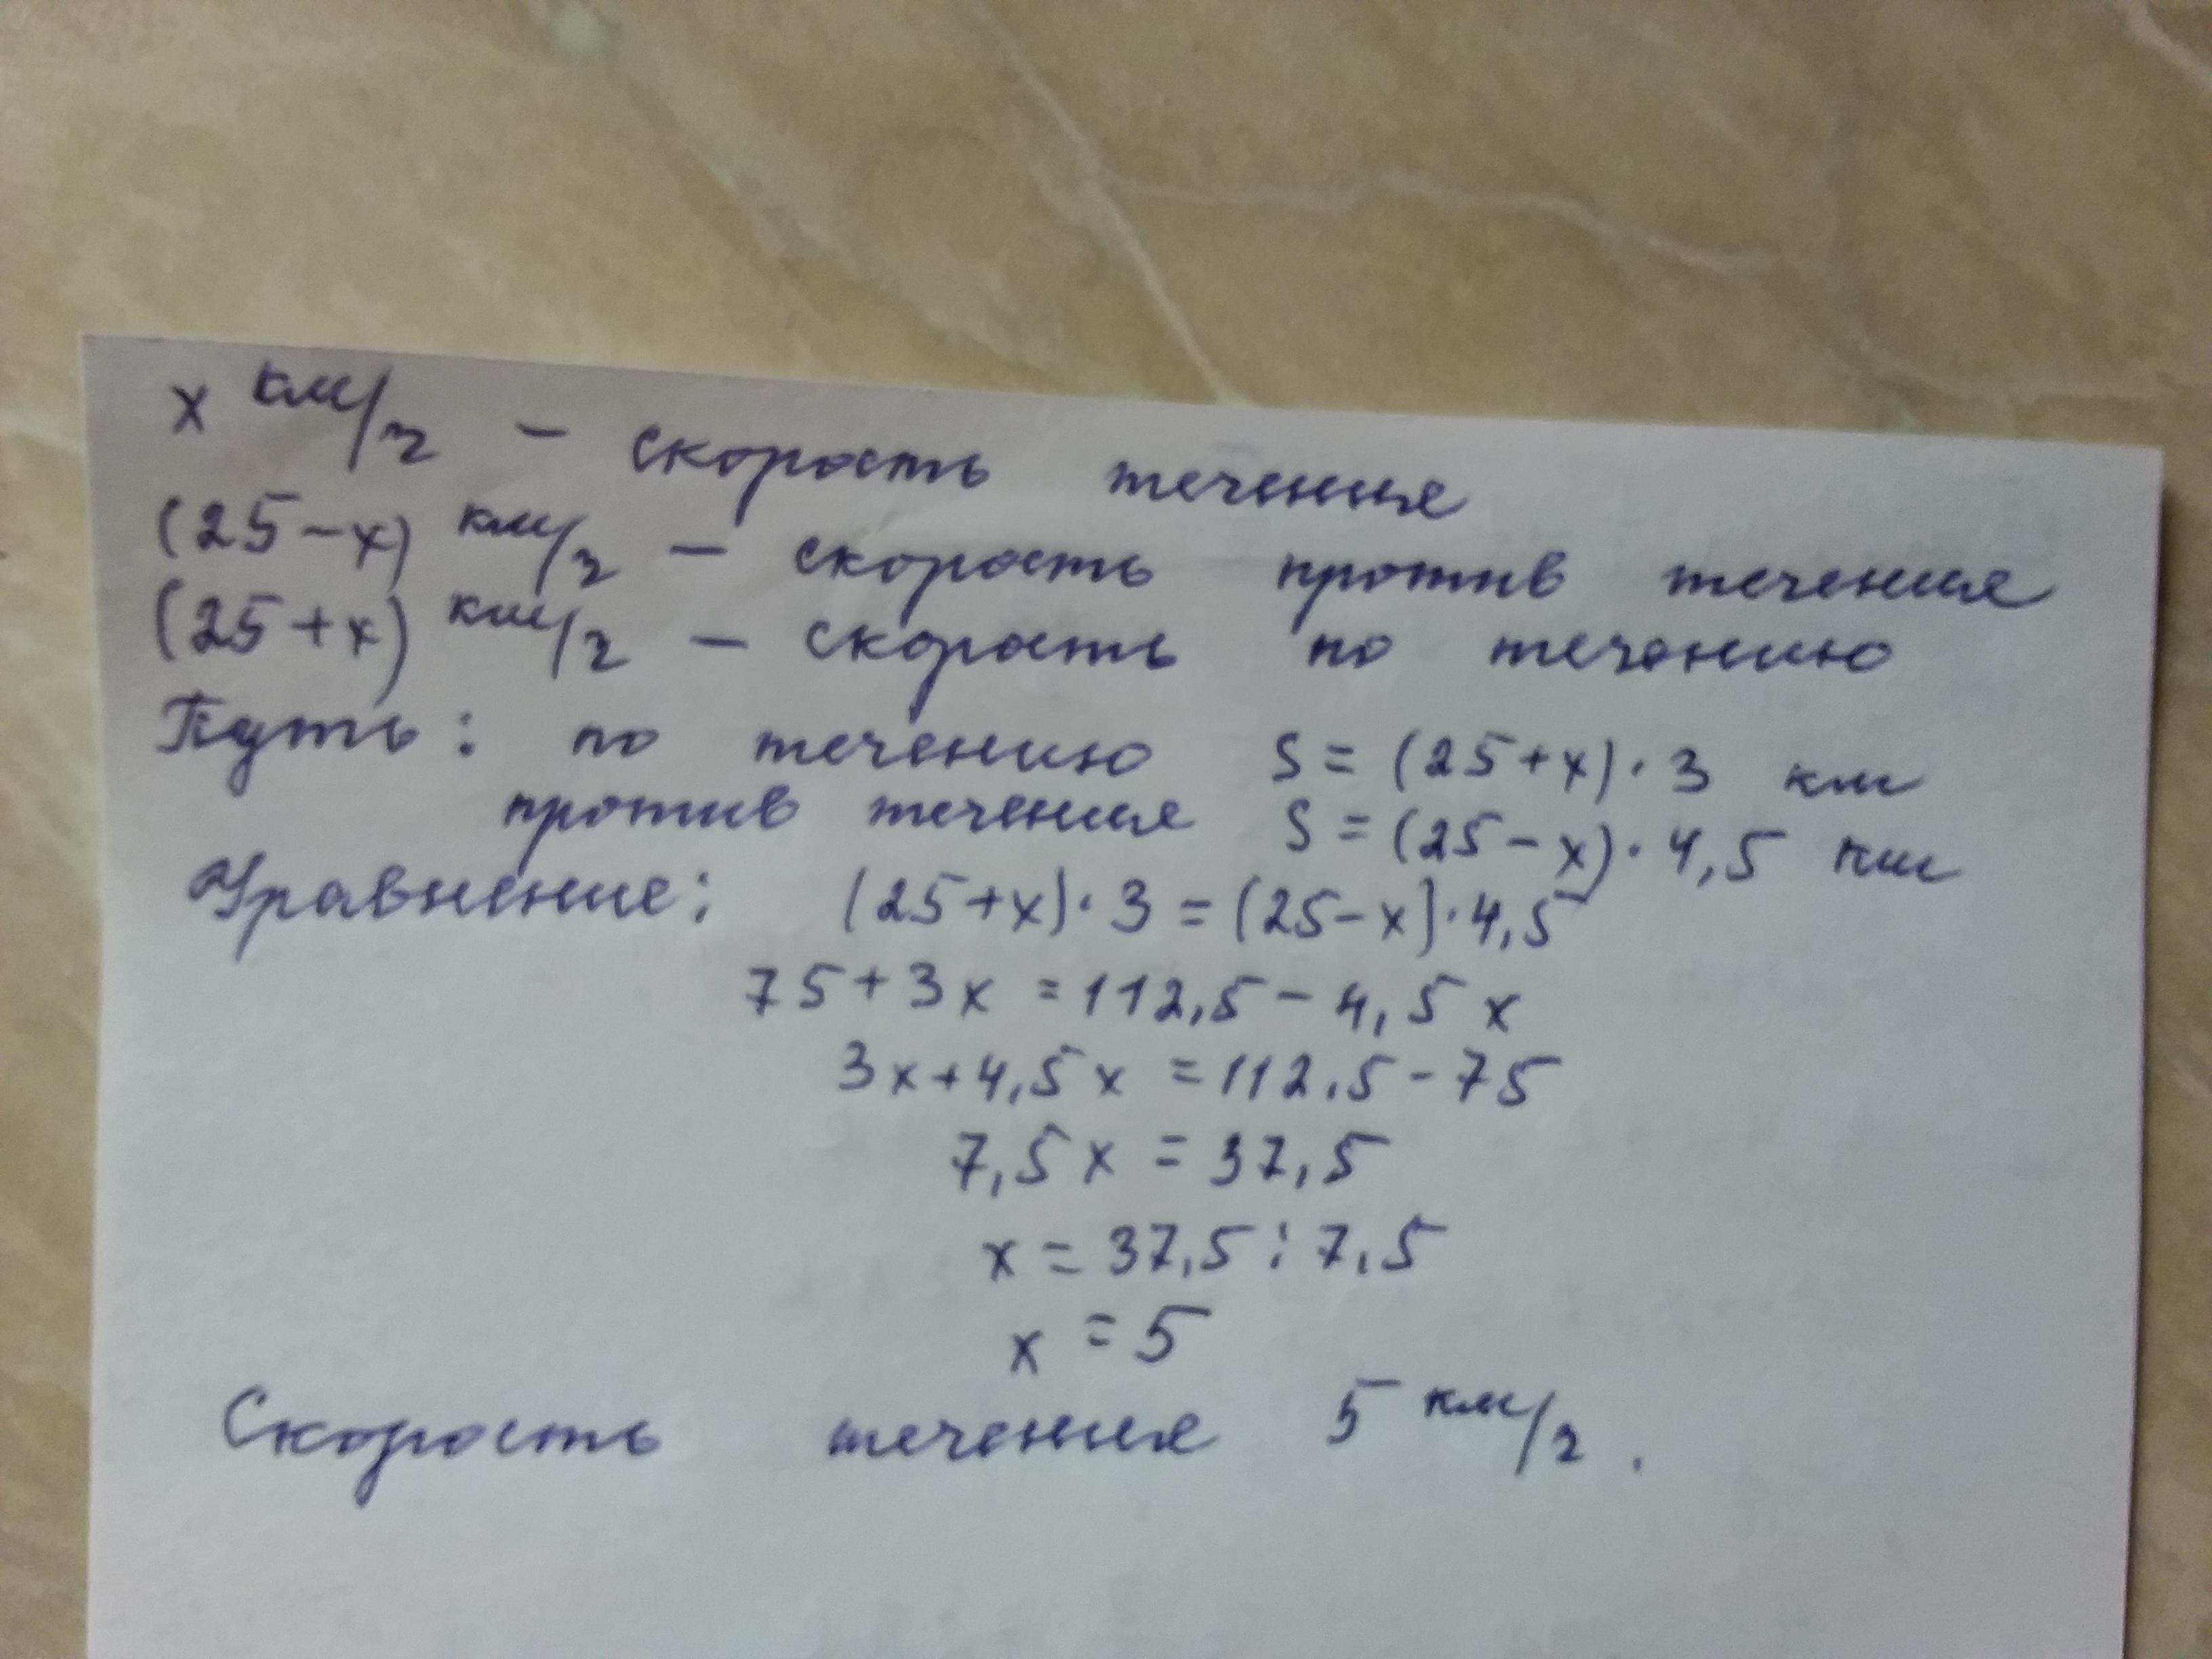 x км/ч – скорость течения
(25-x) км/ч – скорость против течения
(25+x) км/ч – скорость по течению
Путь: по течению S = (25+x)·3 км
против течения S = (25-x)·4,5 км
Уравнение: (25+x)·3 = (25-x)·4,5
75+3x = 112,5 - 4,5x
3x+4,5x = 112,5 - 75
7,5x = 37,5
x = 37,5 : 7,5
x = 5
Скорость течения 5 км/ч.